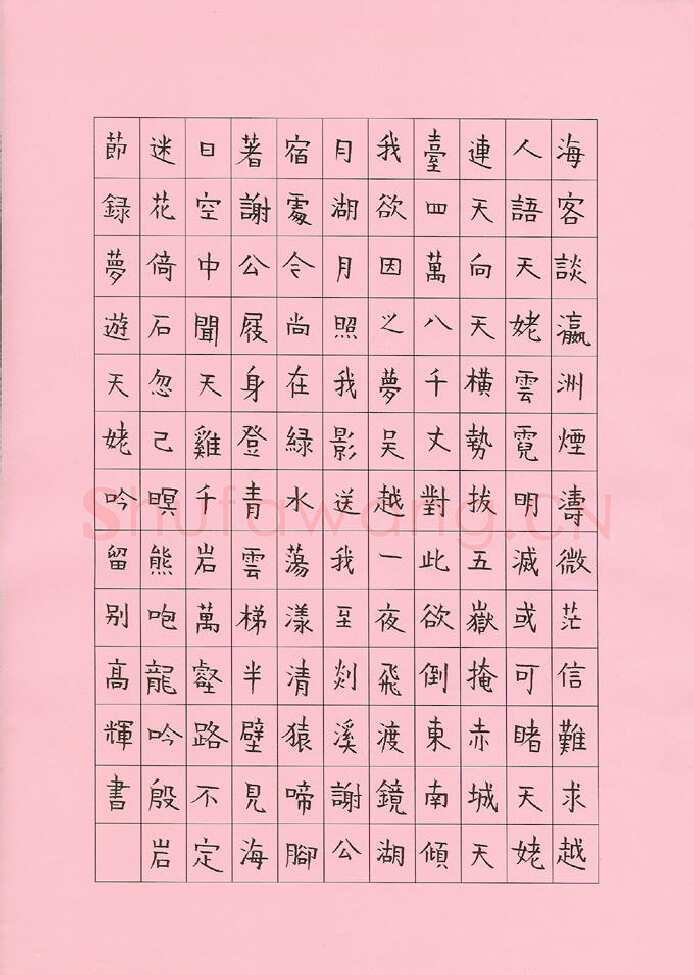 海客談瀛洲煙濤微茫信難求越
人語天姥雲霓明滅或可睹天姥
連天向天橫勢拔五嶽掩赤城天
臺四萬八千丈對此欲倒東南傾
我欲因之夢吴越一夜飛渡鏡湖
月湖月照我影送我至剡溪謝公
宿處今尚在綠水蕩漾清猿啼腳
著謝公屐身登青雲梯半壁見海
日空中聞天雞千岩萬壑路不定
迷花倚石忽己暝熊咆龍吟殷岩
節録夢遊天姥吟留别高輝書
Shufawang.CN